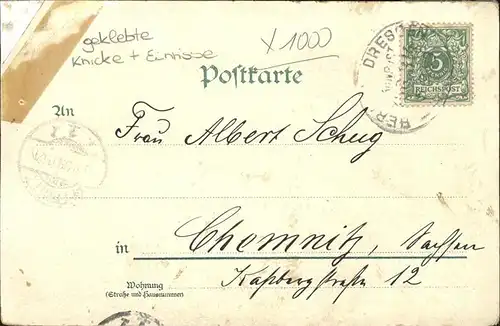 geklebte
Knicke + Einrisse
X 1000
DRESD
5
REICHSPOST
Postkarte
An
Frau Albert Schug
in Chemnitz, Sachsen
Kaßbergstraße 12
Wohnung
(Straße und Hausnummer)